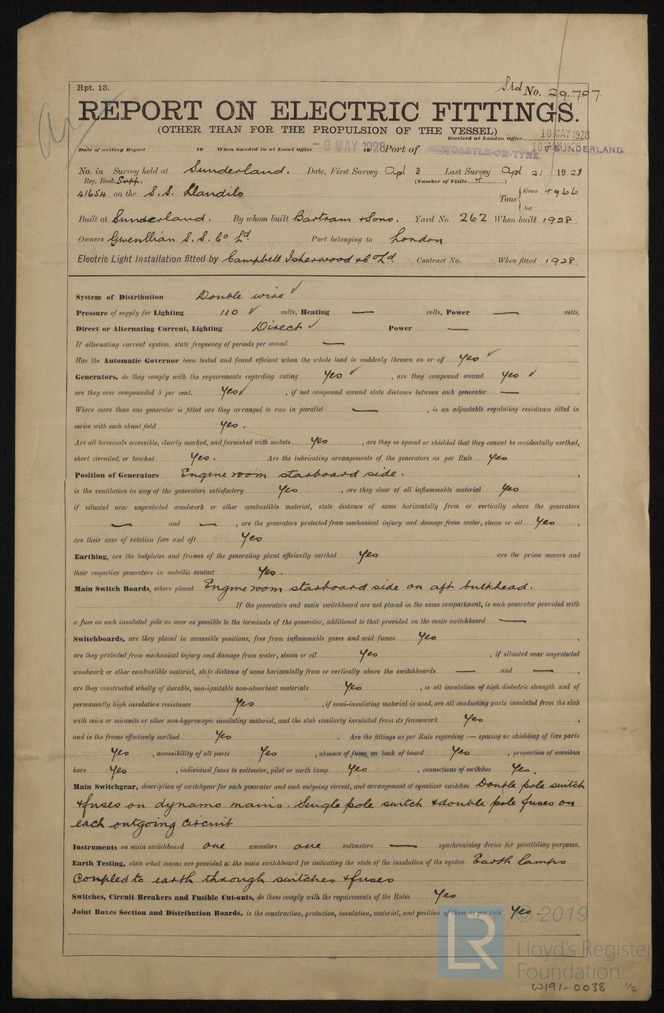 Rpt. 13.
Std No. 29,797
REPORT ON ELECTRIC FITTINGS.
(OTHER THAN FOR THE PROPULSION OF THE VESSEL)
Received at London Office 10 MAY 1928
Date of writing Report 19 When handed in at Local Office - 9 MAY 1928 19 Port of NEWCASTLE-ON-TYNE SUNDERLAND.
No. in Survey held at Sunderland. Date, First Survey Apl 3 Last Survey Apl 21 1928
Reg. Book. Supp. (Number of Visits
41654 on the S.S. Llandilo Tons { Gross 4966
Net
Built at Sunderland. By whom built Bartram & Sons. Yard No. 262 When built 1928
Owners Gwenllian S.S. Co Ld. Port belonging to London
Electric Light Installation fitted by Campbell Isherwood & Co Ld. Contract No. When fitted 1928
System of Distribution Double wire ✓
Pressure of supply for Lighting 110 ✓ volts, Heating — volts, Power — volts.
Direct or Alternating Current, Lighting Direct ✓ Power —
If alternating current system, state frequency of periods per second —
Has the Automatic Governor been tested and found efficient when the whole load is suddenly thrown on or off Yes ✓
Generators, do they comply with the requirements regarding rating Yes ✓ , are they compound wound Yes ✓
are they over compounded 5 per cent. Yes ✓ , if not compound wound state distance between each generator —
Where more than one generator is fitted are they arranged to run in parallel — , is an adjustable regulating resistance fitted in
series with each shunt field Yes.
Are all terminals accessible, clearly marked, and furnished with sockets Yes , are they so spaced or shielded that they cannot be accidentally earthed,
short circuited, or touched Yes. Are the lubricating arrangements of the generators as per Rule Yes
Position of Generators Engine room starboard side.
is the ventilation in way of the generators satisfactory Yes , are they clear of all inflammable material Yes
if situated near unprotected woodwork or other combustible material, state distance of same horizontally from or vertically above the generators
— and — , are the generators protected from mechanical injury and damage from water, steam or oil Yes ,
are their axes of rotation fore and aft Yes
Earthing, are the bedplates and frames of the generating plant efficiently earthed Yes are the prime movers and
their respective generators in metallic contact Yes.
Main Switch Boards, where placed Engine room starboard side on aft bulkhead.
If the generators and main switchboard are not placed in the same compartment, is each generator provided with
a fuse on each insulated pole as near as possible to the terminals of the generator, additional to that provided on the main switchboard —
Switchboards, are they placed in accessible positions, free from inflammable gases and acid fumes Yes ,
are they protected from mechanical injury and damage from water, steam or oil Yes , if situated near unprotected
woodwork or other combustible material, state distance of same horizontally from or vertically above the switchboards — and — ,
are they constructed wholly of durable, non-ignitable non-absorbent materials Yes , is all insulation of high dielectric strength and of
permanently high insulation resistance Yes , if semi-insulating material is used, are all conducting parts insulated from the slab
with mica or micanite or other non-hygroscopic insulating material, and the slab similarly insulated from its framework Yes ,
and is the frame effectively earthed Yes . Are the fittings as per Rule regarding:— spacing or shielding of live parts
Yes , accessibility of all parts Yes , absence of fuses on back of board Yes , proportion of omnibus
bars Yes , individual fuses to voltmeter, pilot or earth lamp Yes , connections of switches Yes.
Main Switchgear, description of switchgear for each generator and each outgoing circuit, and arrangement of equalizer switches Double pole switch
& fuses on dynamo mains. Single pole switch & double pole fuses on
each outgoing circuit
Instruments on main switchboard one ammeters one voltmeters — synchronising device for paralleling purposes.
Earth Testing, state what means are provided at the main switchboard for indicating the state of the insulation of the system Earth lamps
coupled to earth through switches & fuses
Switches, Circuit Breakers and Fusible Cut-outs, do these comply with the requirements of the Rules Yes
Joint Boxes Section and Distribution Boards, is the construction, protection, insulation, material, and position of these as per rule Yes.
LR
© 2019
Lloyd's Register
Foundation
W191-0038 1/2